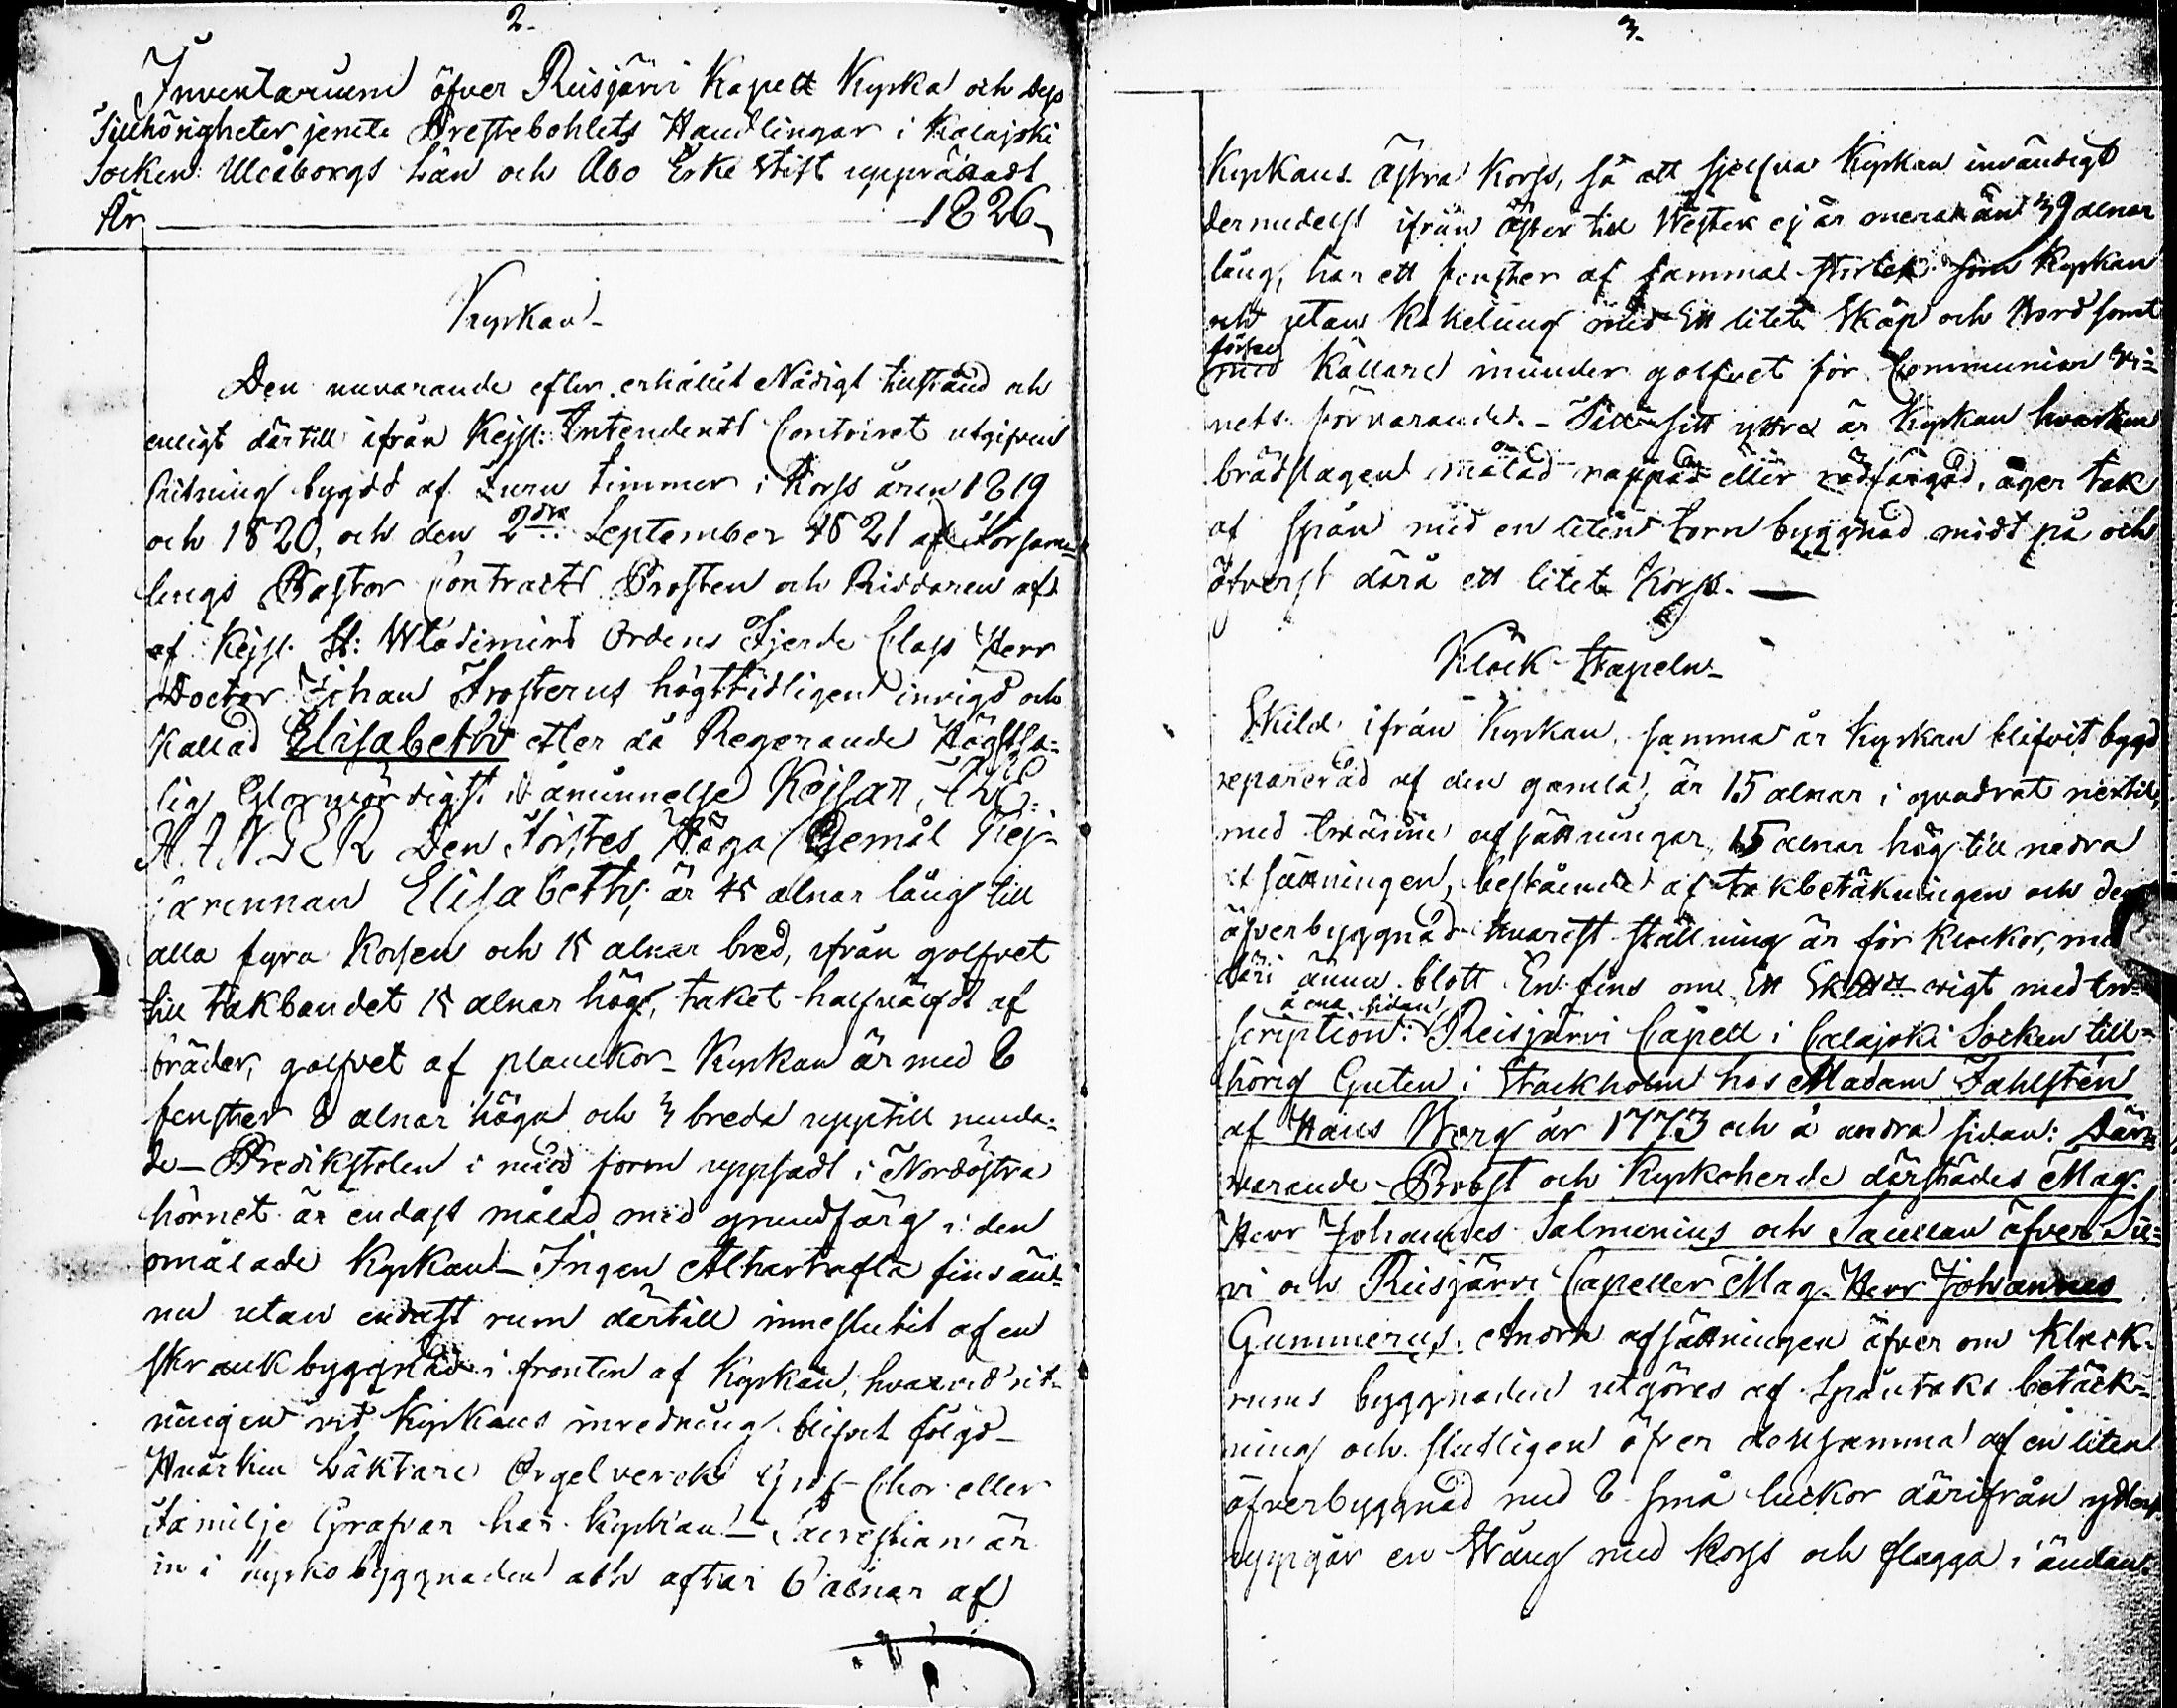 2.
Inventarium öfver Reisjärvi Kapell Kyrka och dess
Tillhörigheter jemte Prestebohlets Handlingar i Kalajoki
Socken Uleåborgs Län och Åbo Erke Stift upprättadt
År 1826.
Kyrkan
Den nuvarande efter erhållit Nådigt tillstånd och
enligt därtill ifrån Kejsl: Intendents Contoiret utgifven
Ritning bygdd af Furu timmer i Korss åren 1819
och 1820, och den 2dra September 1821 af Församl-
lings Pastor Contracts Prosten och Riddaren af
af Kejsl. St: Wladimirs Ordens Fjerde Class Herr
Doctor Johan Frosterus högtidligen invigd och
Kallad Elisabeth efter då Regerande Högstsa-
lig Glorvördigst i åminnelse Kejsar ALE-
XANDER den Förstes Höga Gemål Kej-
sarinnan Elisabeth, är 45 alnar lång till
alla fyra Korsen och 15 alnar bred, ifrån golfvet
till takbandet 15 alnar hög, taket halfvälfdt af
bräder, golfvet af planckor - Kyrkan är med 8
fenster 8 alnar höga och 3 breda upptill runda-
de - Predikstolen i rund form uppsadt i Nordöstra
hörnet är endast målad med grundfärg i den
omålade Kyrkan - Ingen Altartafla fins än-
nu utan endast rum därtill inneslutit af en
skrank byggnad i fronten af Kyrkan, hvarvid rit-
ningen vid Kyrkans inredning blifvit följd -
Hvarken Läktare Orgelverck Graf-Chor eller
Familje Grafvar har Kyrkan - Sacrestian är
in i kyrko byggnaden och aftar 6 alnar af
3.
Kyrkans Östra Korss, så att sjelfva Kyrkan invändigt
dermedelst ifrån Öster till Wester ej är mera än 39 alnar
lång, har ett fenster af samma storlek som Kyrkan
och utan Kakelung med Ett litet Skåp och Bord samt
försedd
med Källare inunder golfvet för Communion Vi-
nets förvarande. - Till sitt yttre är Kyrkan hvarken
brädslagen målad rappad eller rödfärgad, äger tak
af spån med en liten torn byggnad midt på och
öfverst därå ett litet Korss. -
Klock-Stapeln
Skild ifrån Kyrkan, samma år Kyrkan blifvit bygd
reparerad af den gamla, är 15 alnar i quadrat nertill,
med tvänne afsättningar, 15 alnar hög till nedra
afsättningen, bestående af takbetäkningen och den
öfverbyggnad hvarest ställning är för Klockor, men
däri ännu blott En fins om Ett Skeppd vigt med In-
å ena sidan
scription: Reisjärvi Capell i Calajoki Socken till-
hörig Guten i Stockholm hos Madam Fahlstén
af Hans Berg år 1773 och å andra sidan: Där-
varande Probst och Kyrkoherde därstädes Mag.
Herr Johannes Salmenius och Sacellan öfver Sie-
vi och Reisjärvi Capeller Mag. Herr Johannes
Gummerus. Andra afsättningen öfver om Klock-
rums byggnaden utgöres af Spåntaks betäck-
ning och slutligen öfver densamma af en liten
öfverbyggnad med 8 små luckor därifrån ytterst
uppgår en Stång med Korss och flagga i ändan.